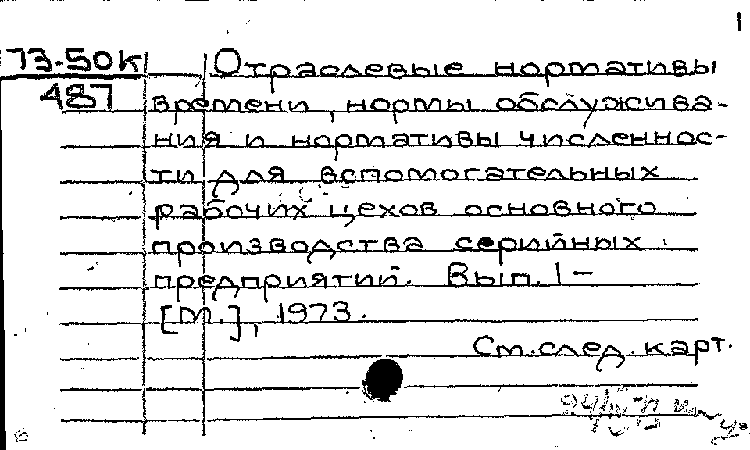 1
73-50К Отраслевые нормативы
487 времени, нормы обслужива-
ния и нормативы численнос-
ти для вспомогательных
рабочих цехов основного
производства серийных
предприятий. Вып. 1 –
[М.], 1973.
См. след. карт.